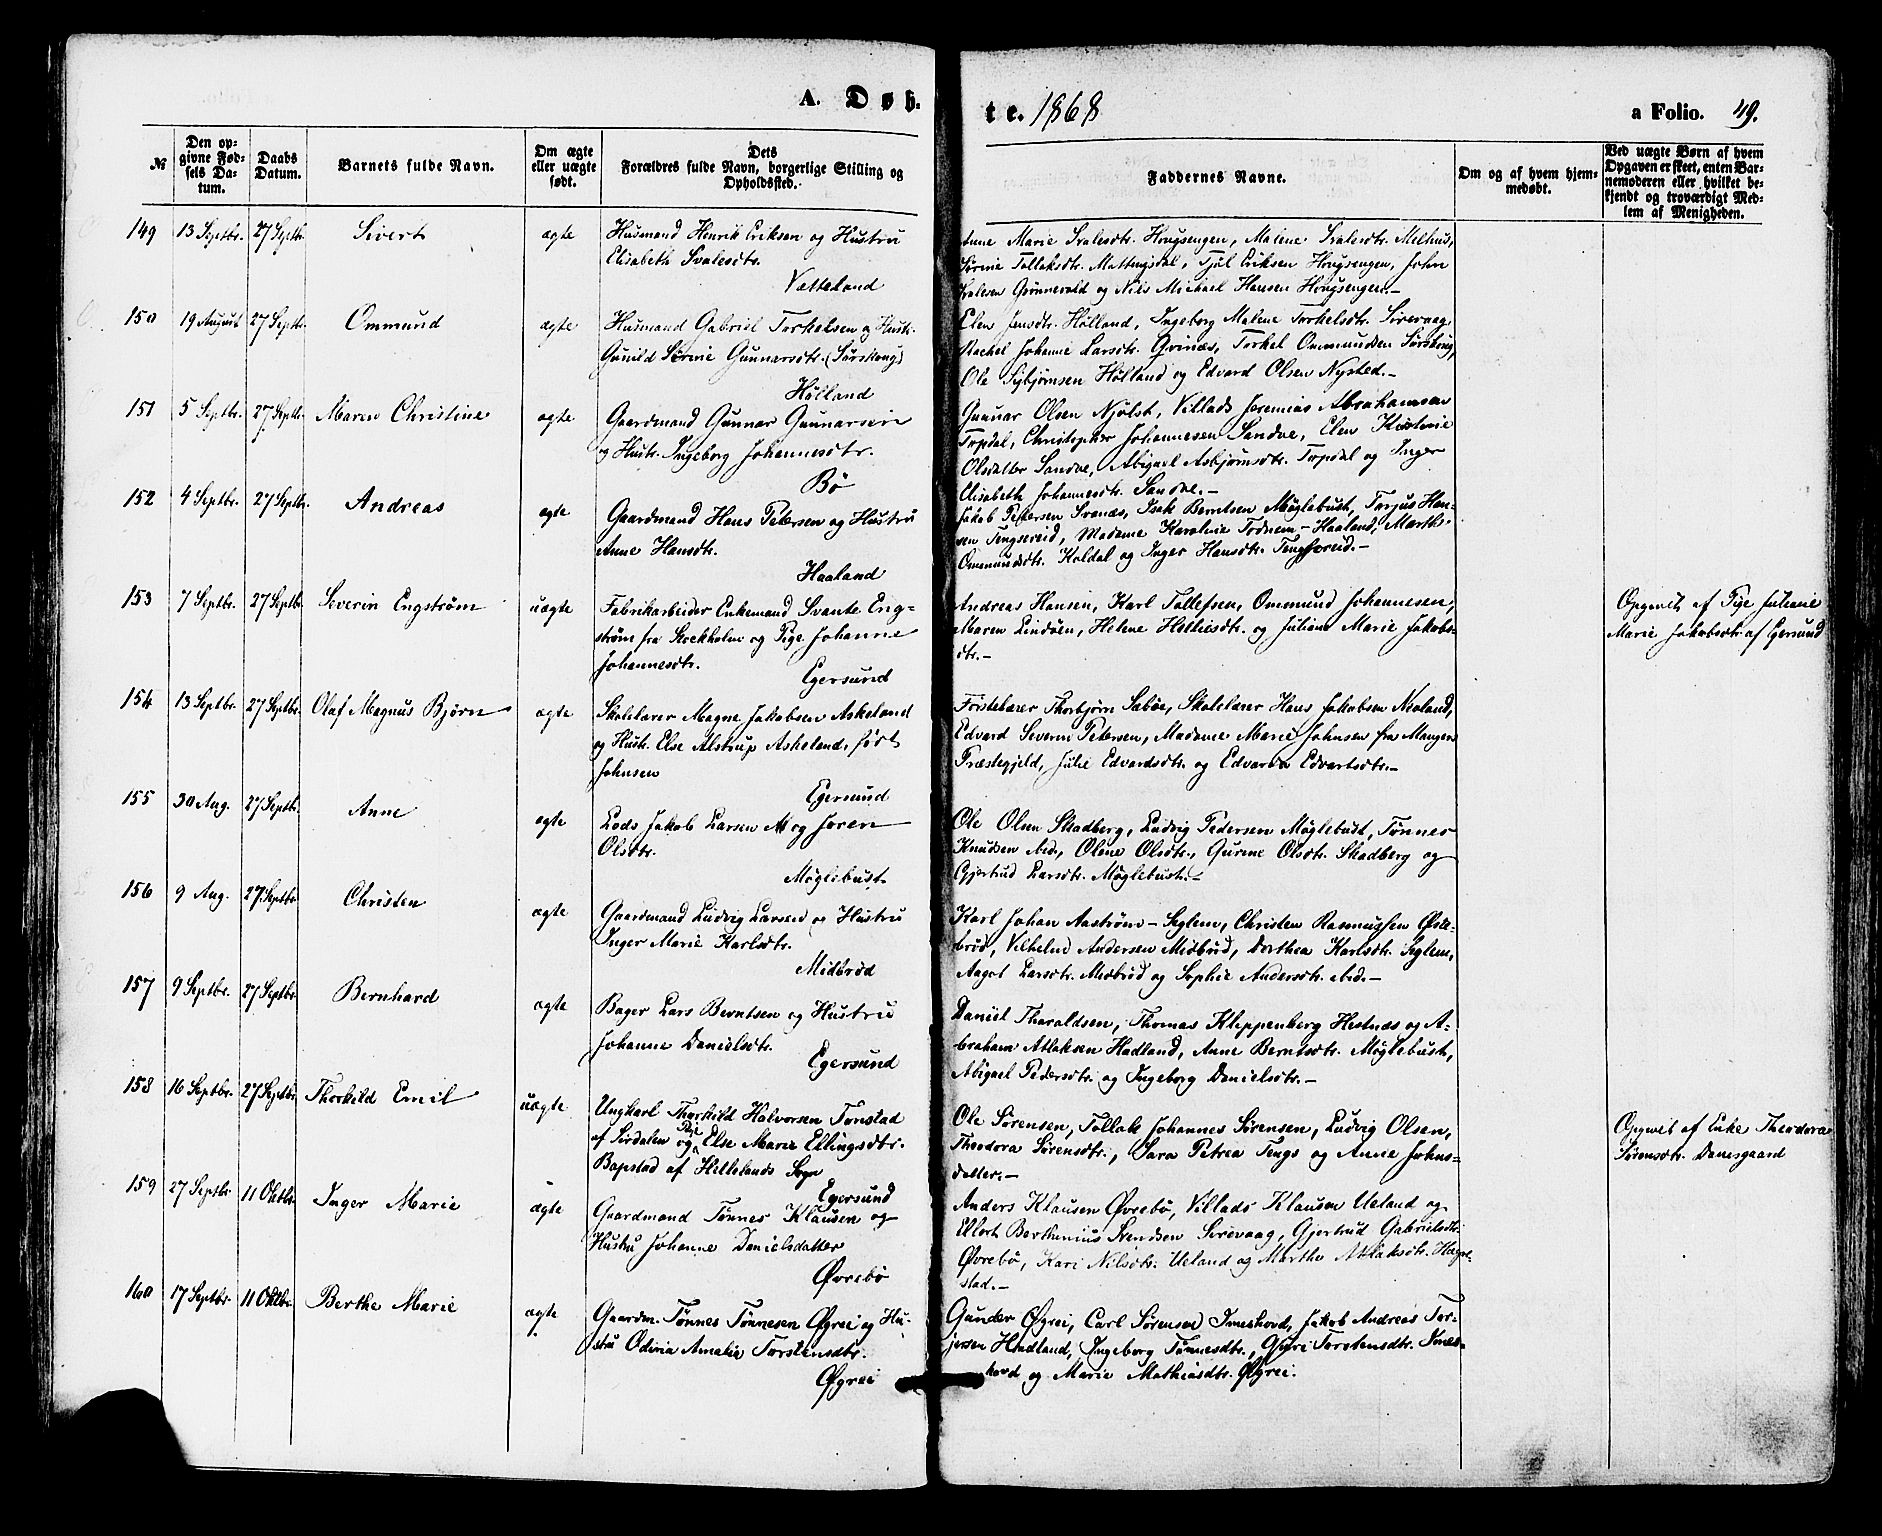 A. Døb-
te. 1868
a Folio. 49.
№
Den op-
givne Fød-
sels Da-
tum.
Daabs
Datum.
Barnets fulde Navn.
Om ægte
eller uægte
født.
Dets
Forældres fulde Navn, borgerlige Stilling og
Opholdssted.
Faddernes Navne.
Om og af hvem hjem-
medøbt.
Ved uægte Børn af hvem
Opgaven er skeet, enten Bar-
nemoderen eller hvilket be-
kjendt og troværdigt Med-
lem af Menigheden.
149 13 Septbr. 27 Septbr. Sivert ægte
Husmand Henrik Eriksen og Hustru
Elisabeth Svalesdtr.
Vatteland
Anne Marie Svalesdtr. Hougsengen, Malene Svalesdtr. Melhus,
Sørine Tollaksdtr. Mattingsdal, Tjøl Eriksen Hougsengen, John
Svalesen Grønnevold og Nils Michael Hansen Hougsengen.-
150 19 August 27 Septbr. Ommund ægte
Husmand Gabriel Torkelsen og Hustr.
Gunild Serine Gunnarsdtr. (Sørskoug)
Hølland
Elen Jensdtr. Hølland, Ingeborg Malene Torkelsdtr. Sirevaag
Rachel Johanne Larsdtr. Grinæs, Torkel Ommundsen Sørskoug,
Ole Sybjørnsen Hølland og Edvard Olsen Nysted.-
151 5 Septbr. 27 Septbr. Maren Christine ægte
Gaardmand Gunnar Gunnarsen
og Hustr. Ingeborg Johannesdtr.
Bø
Gunnar Olsen Njølst, Villads Jeremias Abrahamsen
Topdal, Christopher Johannesen Sandve, Elen Kistine
Olsdatter Sandve, Abigael Asbjørnsdtr. Topdal og Inger
Elisabeth Johannesdtr. Sandve.-
152 4 Septbr. 27 Septbr. Andreas ægte
Gaardmand Hans Petersen og Hustru
Anne Hansdtr.
Haaland
Jakob Petersen Svanæs, Isak Berntsen Møglebust, Torjus Han-
sen Tengsereid, Madame Karoline Todnem-Haaland, Marthe
Ommundsdtr. Koldal og Inger Hansdtr. Tengsereid.-
153 7 Septbr. 27 Septbr. Severin Engstrøm uægte
Fabrikarbeider Enkemand Svante Eng-
strøm fra Stockholm og Pige Johanne
Johannesdtr.
Egersund
Andreas Hansen, Karl Tollefsen, Ommund Johannesen,
Maren Lindøen, Helene Helliesdtr. og Juliane Marie Jakobs-
dtr.-
Opgivet af Pige Juliane
Marie Jakobsdtr. af Egersund
154 13 Septbr. 27 Septbr. Olaf Magnus Bjørn ægte
Skolelærer Magne Jakobsen Askeland
og Hustr. Else Alstrup Askeland, født
Johnsen
Egersund
Førstelærer Thorbjørn Sabøe, Skolelærer Hans Jakobsen Neoland,
Edvard Severin Petersen, Madame Marie Johnsen fra Mangers
Præstegjeld, Julie Edvardsdtr. og Edvarda Edvartsdtr.-
155 30 Aug. 27 Septbr. Anne ægte
Lods Jakob Larsen M og Joren
Olsdtr.
Møglebust
Ole Olsen Skadberg, Ludvig Pedersen Møglebust, Tønnes
Knudsen ibid., Olene Olsdtr., Gurine Olsdtr. Skadberg og
Gjertrud Larsdtr. Møglebust.-
156 9 Aug. 27 Septbr. Christen ægte
Gaardmand Ludvig Larsen og Hustru
Inger Marie Karlsdtr.
Midbrød
Karl Johan Aastrøm-Seglem, Christen Rasmussen Øste-
brød, Vilhelm Andersen Midbrød, Dorthea Karlsdtr. Seglem,
Aagot Larsdtr. Midbrød og Sophie Andersdtr. ibid.-
157 9 Septbr. 27 Septbr. Bernhard ægte
Bager Lars Berntsen og Hustru
Johanne Danielsdtr.
Egersund
Daniel Tharaldsen, Thomas Kleppenberg Hestnæs og A-
braham Atlaksen Hadland, Anne Berntsdtr. Møglebust,
Abigael Pedersdtr. og Ingeborg Danielsdtr.-
158 16 Septbr. 27 Septbr. Thorkild Emil uægte
Ungkarl Thorkild Halvorsen Tonstad
af Sirdalen og Pige Else Marie Ellingsdtr.
Bapstad af Hellelands Sogn
Egersund
Ole Sørensen, Tollak Johannes Sørensen, Ludvig Olsen,
Theodora Sørensdtr., Sara Petrea Tengs og Anne Johns-
datter.-
Opgivet af Enke Theodora
Sørensdtr. Damsgaard
159 27 Septbr. 11 Oktbr. Inger Marie ægte
Gaardmand Tønnes Klausen og
Hustru Johanne Danielsdatter
Øvrebø
Anders Klausen Øvrebø, Villads Klausen Ueland og
Ellert Berthinius Svendsen Sirevaag, Gjertrud Gabrielsdtr.
Øvrebø, Kari Nilsdtr. Ueland og Marthe Atlaksdtr. Hegre-
stad.-
160 17 Septbr. 11 Oktbr. Berthe Marie ægte
Gaardm. Tønnes Tønnesen Øgrei og Hu-
stru Odivia Amalie Torstensdtr.
Øgrei
Gunder Øgrei, Carl Sørensen Imeshord, Jakob Andreas Tor-
jersen Hadland, Ingeborg Tønnesdtr., Guri Torstensdtr. Imes-
hord og Marie Mathiasdtr. Øgrei.